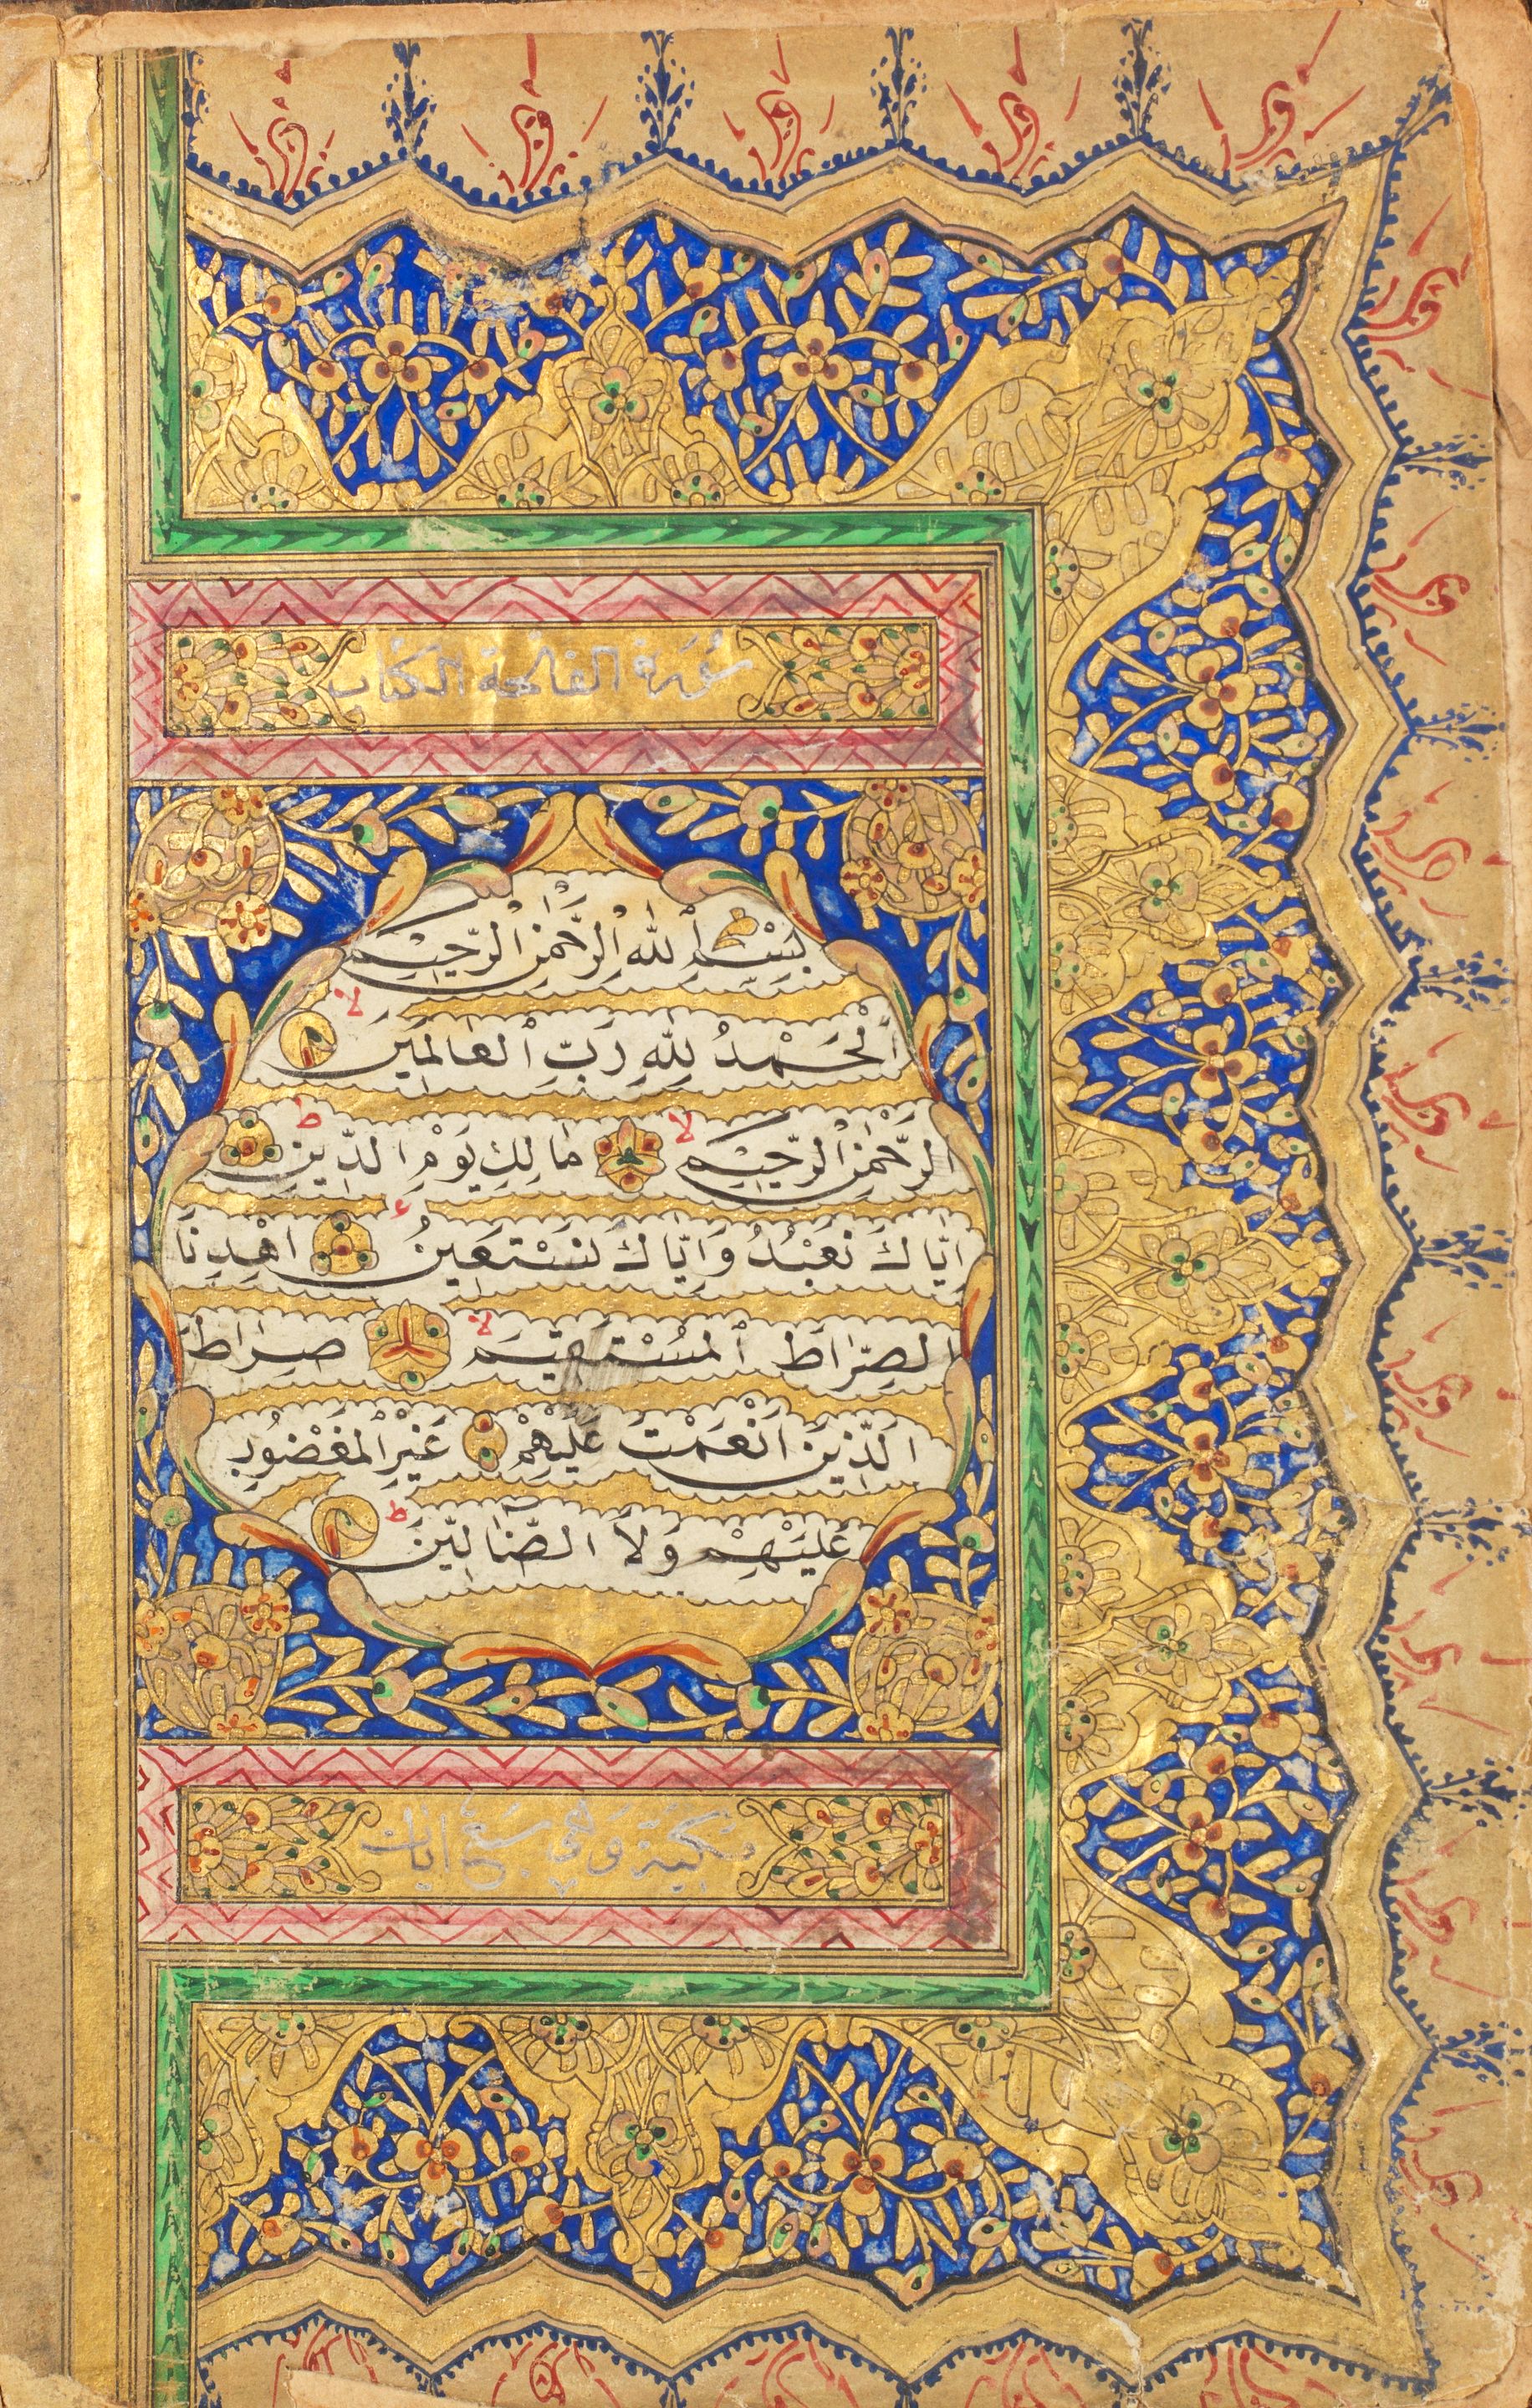 سُورَة الفاتحة الكتاب
بِسْمِ اللهِ الرَّحْمٰنِ الرَّحِيمِ
اَلْحَمْدُ لِلّٰهِ رَبِّ الْعَالَمِينَ لا
اَلرَّحْمٰنِ الرَّحِيمِ لا مَالِكِ يَوْمِ الدِّينِ ط
اِيَّاكَ نَعْبُدُ وَاِيَّاكَ نَسْتَعِينُ اِهْدِنَا
الصِّرَاطَ الْمُسْتَقِيمَ لا صِرَاطَ
الَّذِينَ اَنْعَمْتَ عَلَيْهِمْ غَيْرِ الْمَغْضُوبِ
عَلَيْهِمْ وَلَا الضَّالِّينَ ط
مكية وهى سبع ايات